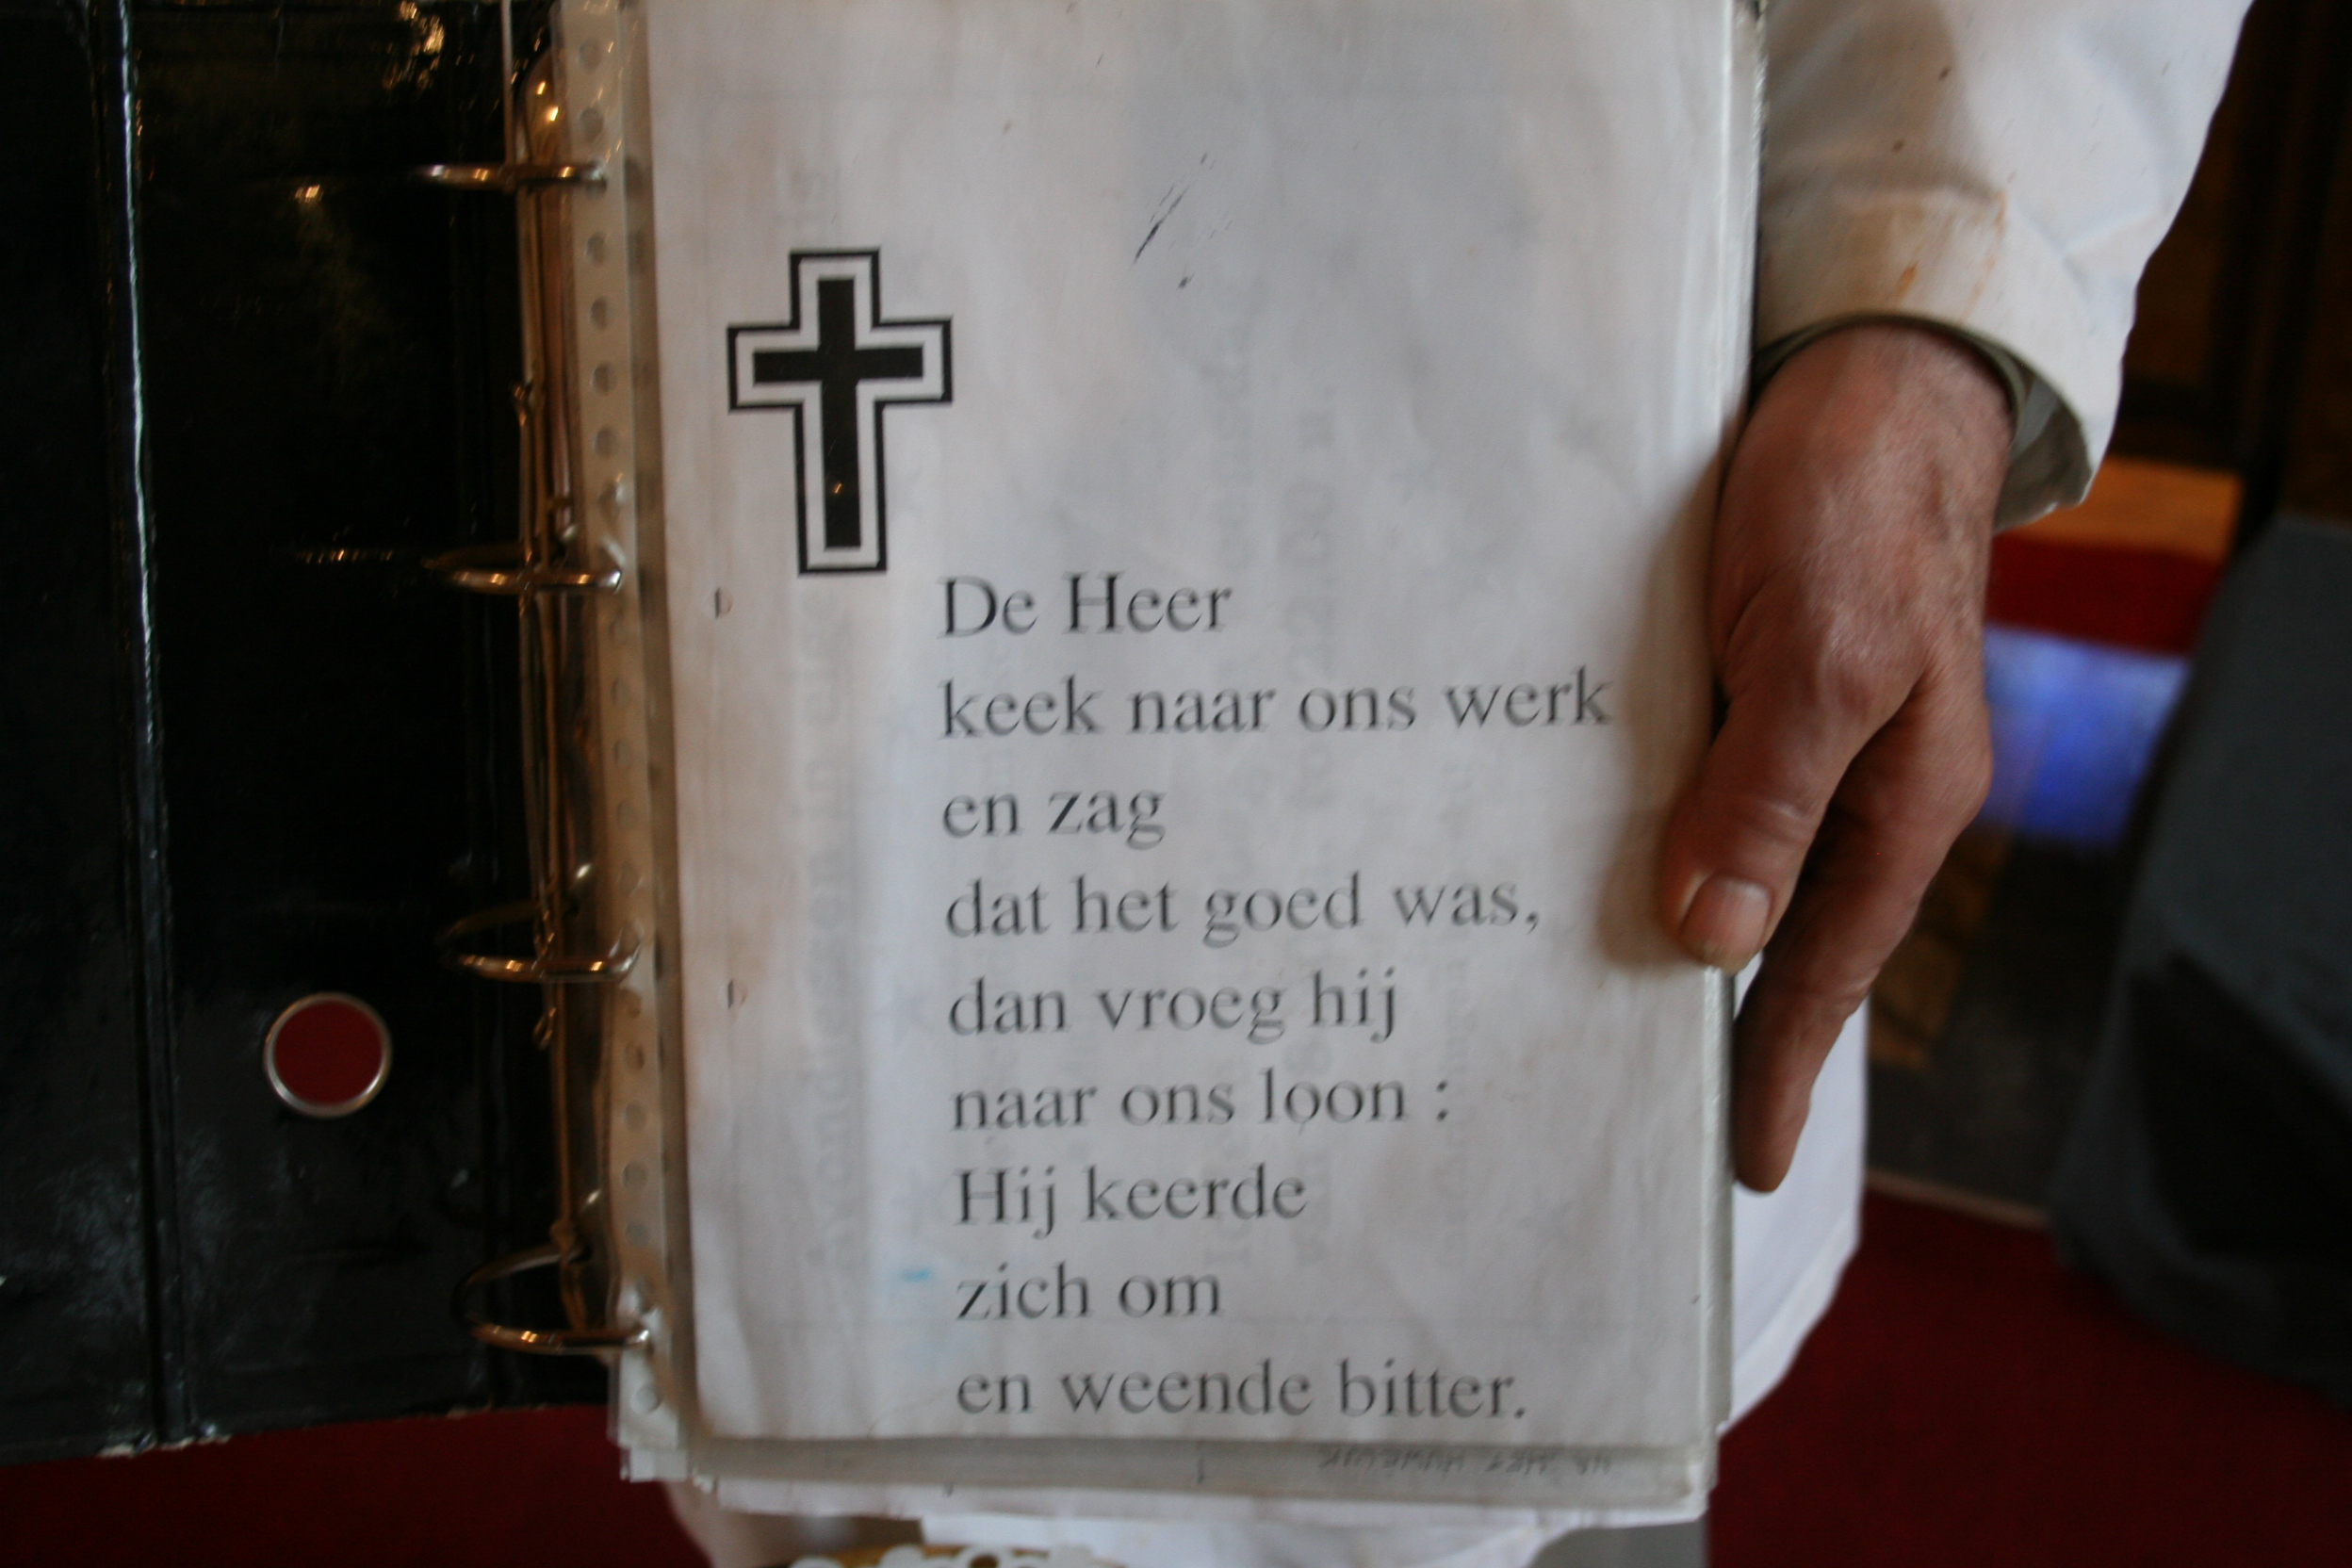 De Heer
keek naar ons werk
en zag
dat het goed was,
dan vroeg hij
naar ons loon :
Hij keerde
zich om
en weende bitter.